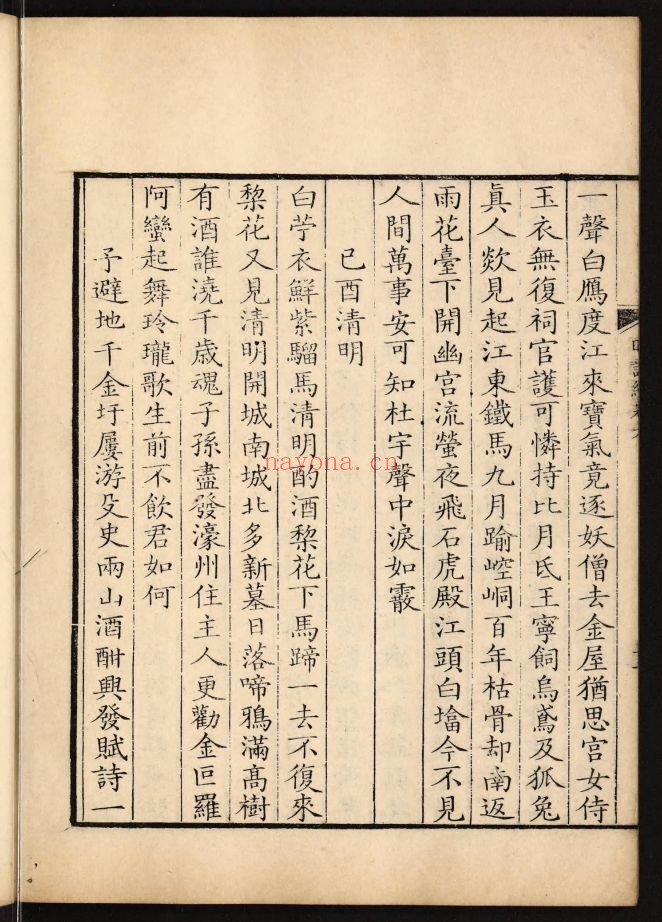 一聲白鴈度江來寶氣竟逐妖僧去金屋猶思宮女侍
玉衣無復祠官護可憐持比月氏王寧飼烏鳶及狐兔
真人欻見起江東鐵馬九月踰崆峒百年枯骨却南返
雨花臺下開幽宮流螢夜飛石虎殿江頭白塔今不見
人間萬事安可知杜宇聲中淚如霰
己酉清明
白苧衣鮮紫騮馬清明酌酒棃花下馬蹄一去不復來
棃花又見清明開城南城北多新墓日落啼鴉滿高樹
有酒誰澆千歲魂子孫盡發濠州住主人更勸金叵羅
阿蠻起舞玲瓏歌生前不飲君如何
予避地千金圩屢游殳史兩山酒酣興發賦詩一
nayona.cn